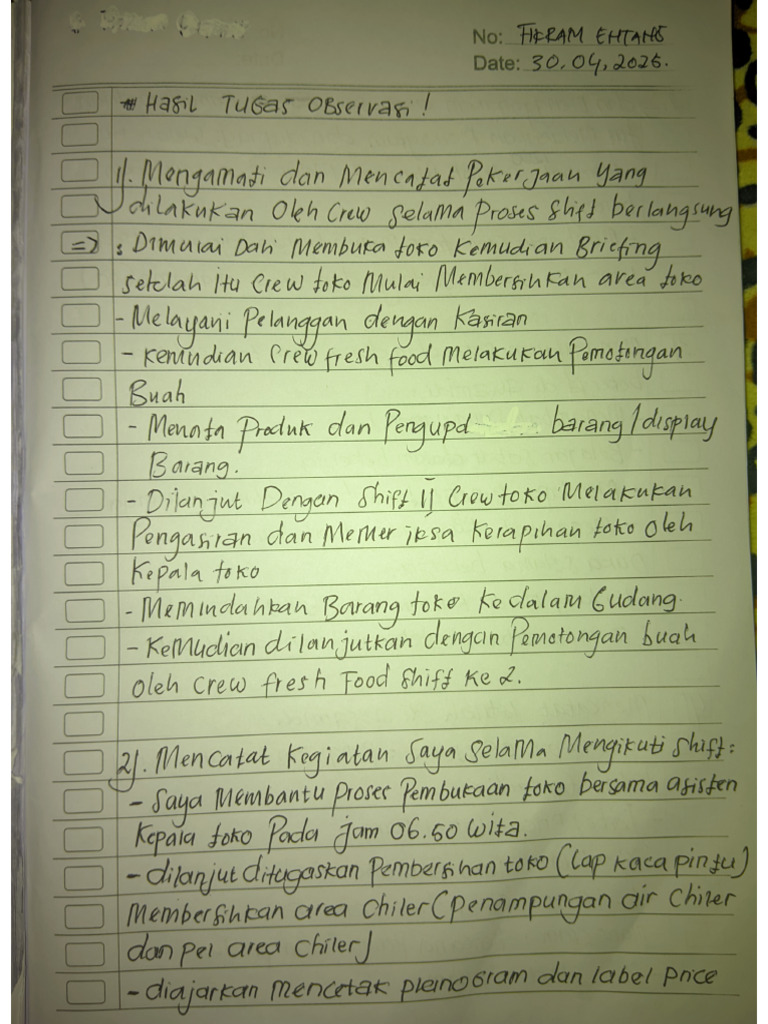 No: FIKRAM EHTANS
Date: 30.04.2025.
# HASIL TUGAS OBSERVASI!
1). Mengamati dan Mencatat Pekerjaan Yang
dilakukan Oleh Crew Selama Proses Shift berlangsung
=> : Dimulai Dari Membuka toko Kemudian Briefing
setelah itu Crew toko Mulai Membersihkan area toko
- Melayani Pelanggan dengan Kasiran
- Kemudian Crew fresh food Melakukan Pemotongan
Buah
- Menata Produk dan Pengupd barang/display
Barang.
- Dilanjut Dengan Shift II Crew toko Melakukan
Pengasiran dan Memeriksa Kerapihan toko oleh
Kepala toko
- Memindahkan Barang toko Kedalam Gudang.
- Kemudian dilanjutkan dengan Pemotongan buah
Oleh Crew fresh Food Shift Ke 2.
2). Mencatat Kegiatan Saya Selama Mengikuti Shift:
- Saya Membantu Proses Pembukaan toko bersama asisten
Kepala toko Pada jam 06.50 Wita.
- dilanjut ditugaskan Pembersihan toko (Lap kaca pintu)
Membersihkan area Chiler (penampungan air Chiler
dan pel area Chiler)
- diajarkan mencetak planogram dan label price